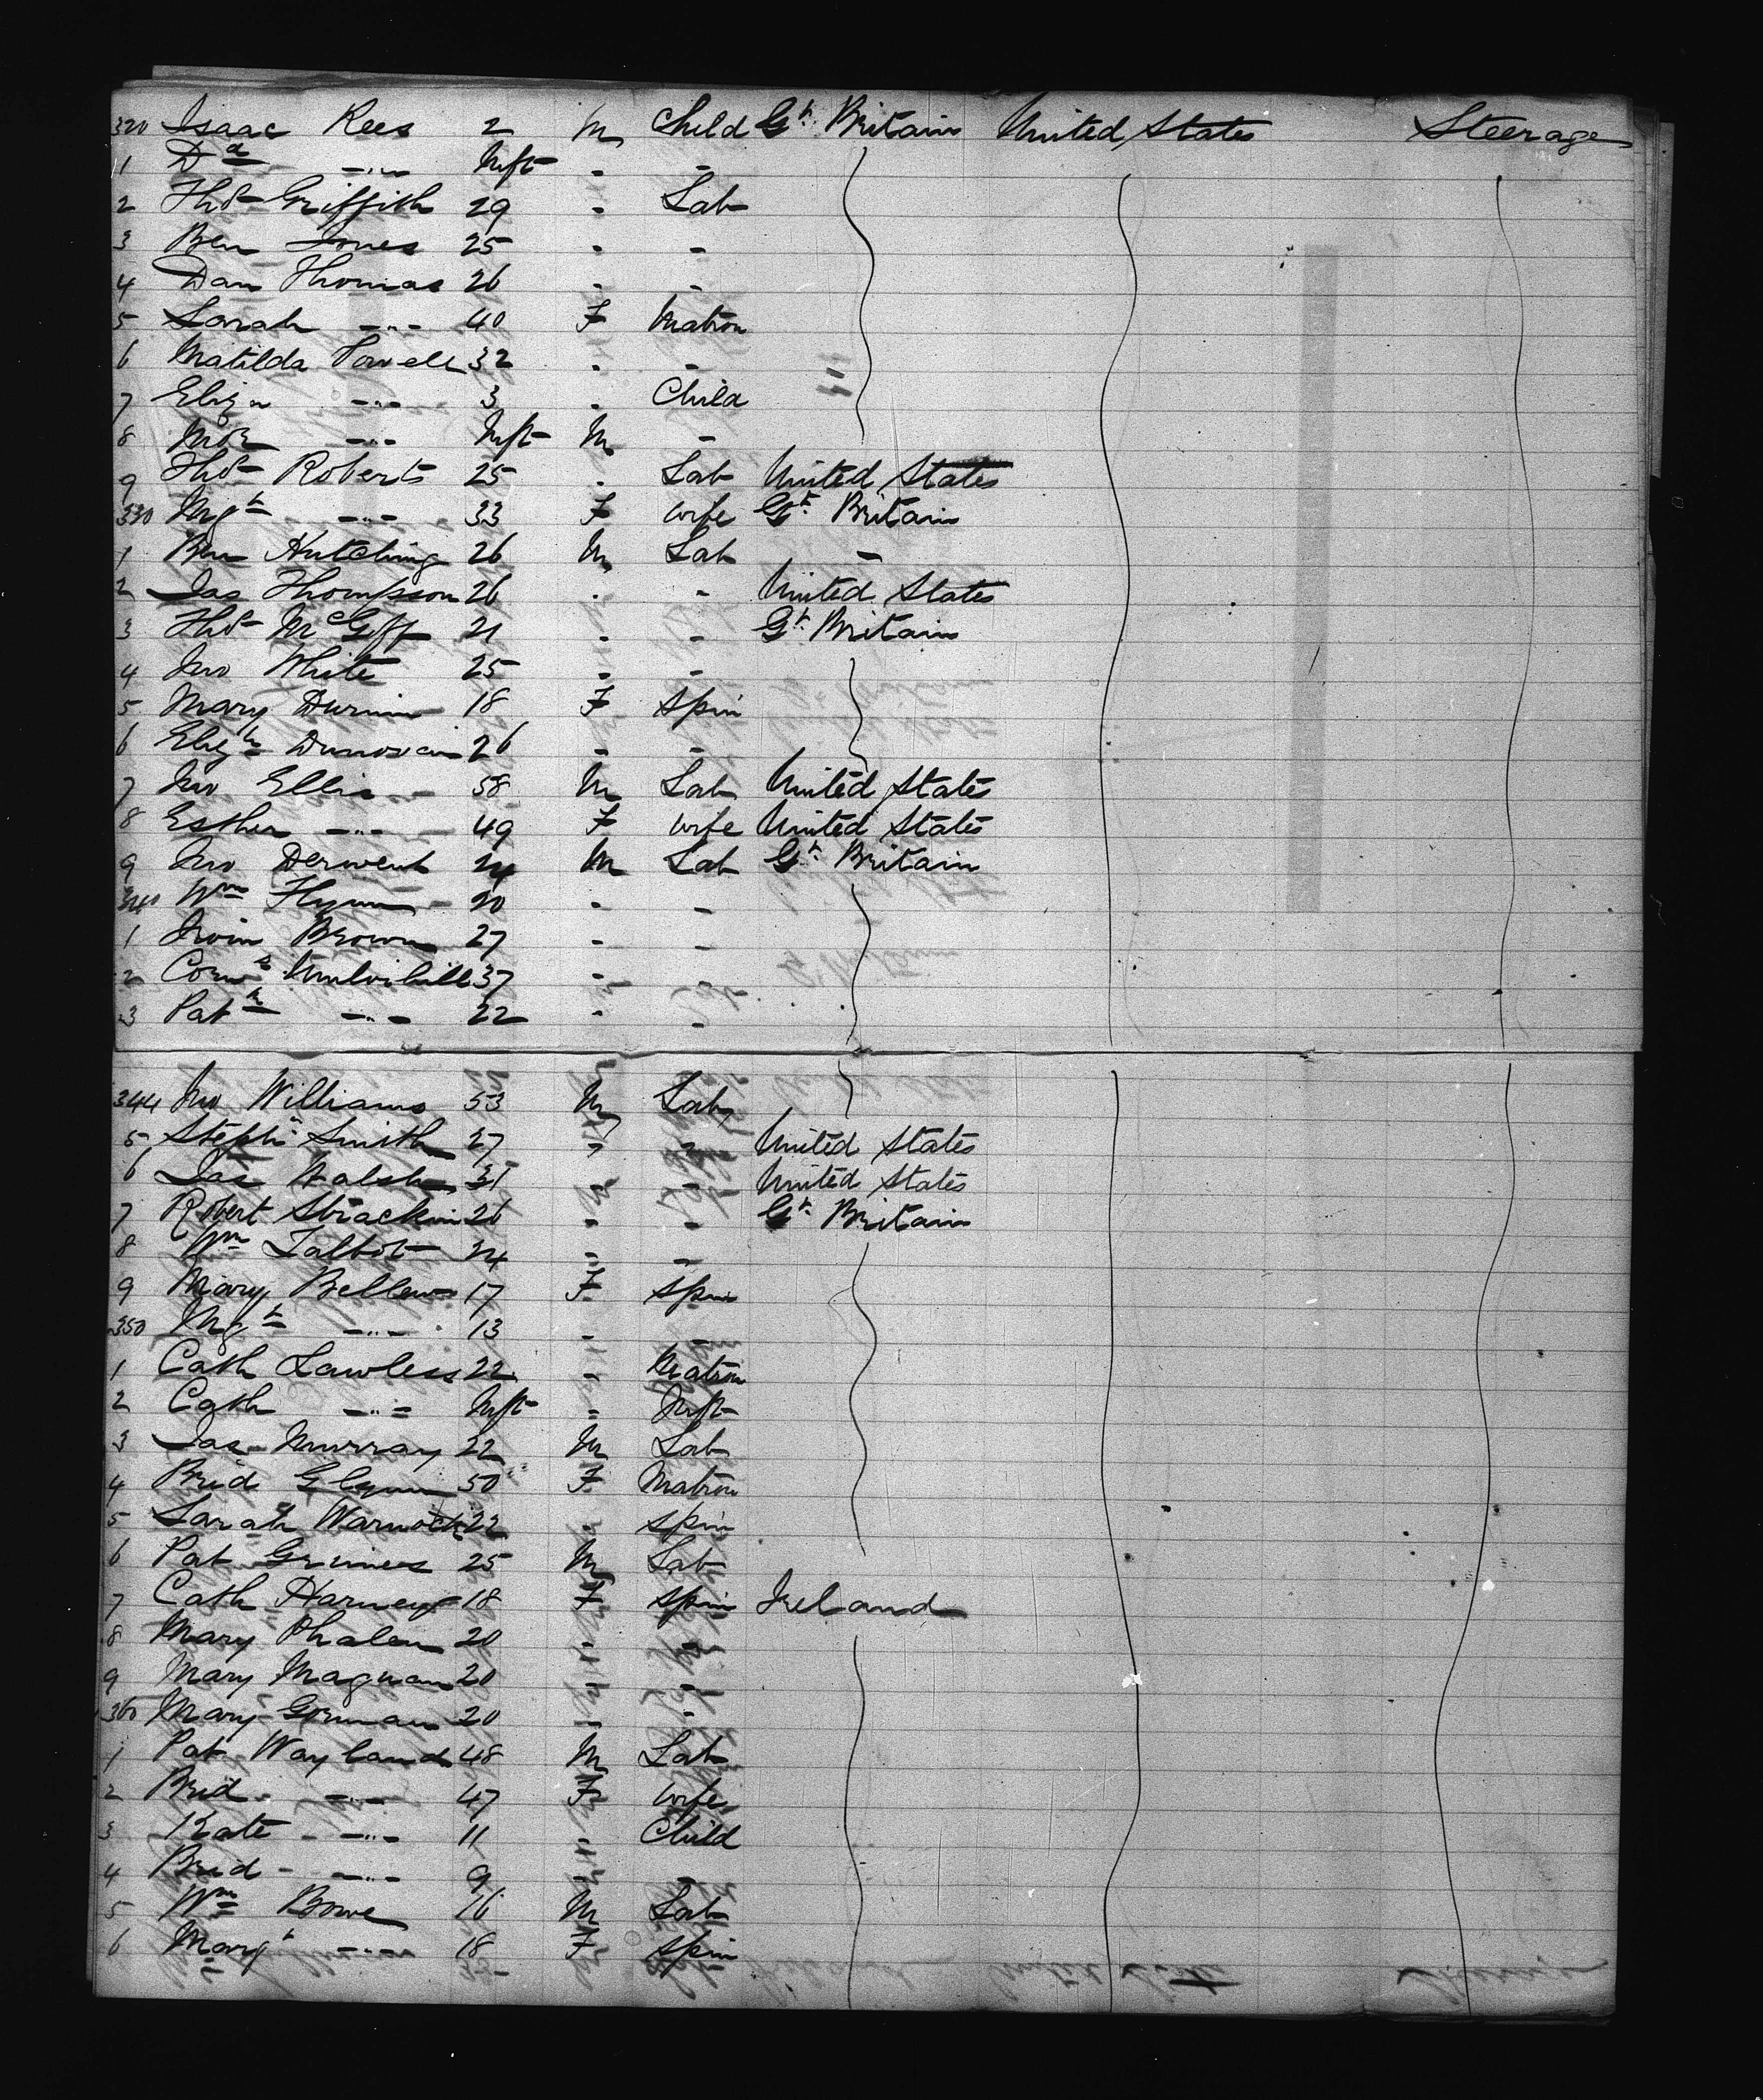 320 Isaac Rees 2 M Child Gt. Britain United States Steerage
1 Dd -"- Inft - -
2 Thos Griffith 29 - Lab
3 Ben Jones 25 - -
4 Dan Thomas 26 - -
5 Sarah -"- 40 F Matron
6 Matilda Powell 32 - -
7 Eliza -"- 3 - Child
8 -"- Inft M -
9 Thos Roberts 25 - Lab United States
330 Mgt -"- 33 F Wife Gt. Britain
1 Ben Hutching 26 M Lab -
2 Jas Thompson 26 - - United States
3 Thos McGoff 21 - - Gt. Britain
4 Jno White 25 - -
5 Mary Durnin 18 F Spin
6 Elizth Dunovan 26 - -
7 Jno Ellis 58 M Lab United States
8 Esther -"- 49 F Wife United States
9 Jno Derwent 24 M Lab Gt. Britain
340 Wm Flynn 20 - -
1 Irvin Brown 27 - -
2 Corns Mulvihill 37 - -
3 Patk -"- 22 - -
344 Jno Williams 53 M Lab
5 Stephn Smith 27 " " United States
6 Jas Walsh 31 - - United States
7 Robert Strackin 26 - - Gt. Britain
8 Wm Talbot 24 - -
9 Mary Bellew 17 F Spin
350 Mgt -"- 13 - -
1 Cath Lawless 22 - Matron
2 Cath -"- Inft - Inft
3 Jas Murray 22 M Lab
4 Brid Glynn 50 F Matron
5 Sarah Warnock 22 - Spin
6 Pat Grimes 25 M Lab
7 Cath Harney 18 F Spin Ireland
8 Mary Phalen 20 - -
9 Mary Magnan 20 - -
360 Mary Gorman 20 - -
1 Pat Wayland 48 M Lab
2 Brid -"- 47 F Wife
3 Kate -"- 11 - Child
4 Brid -"- 9 - -
5 Wm Bowe 16 M Lab
6 Margt -"- 18 F Spin